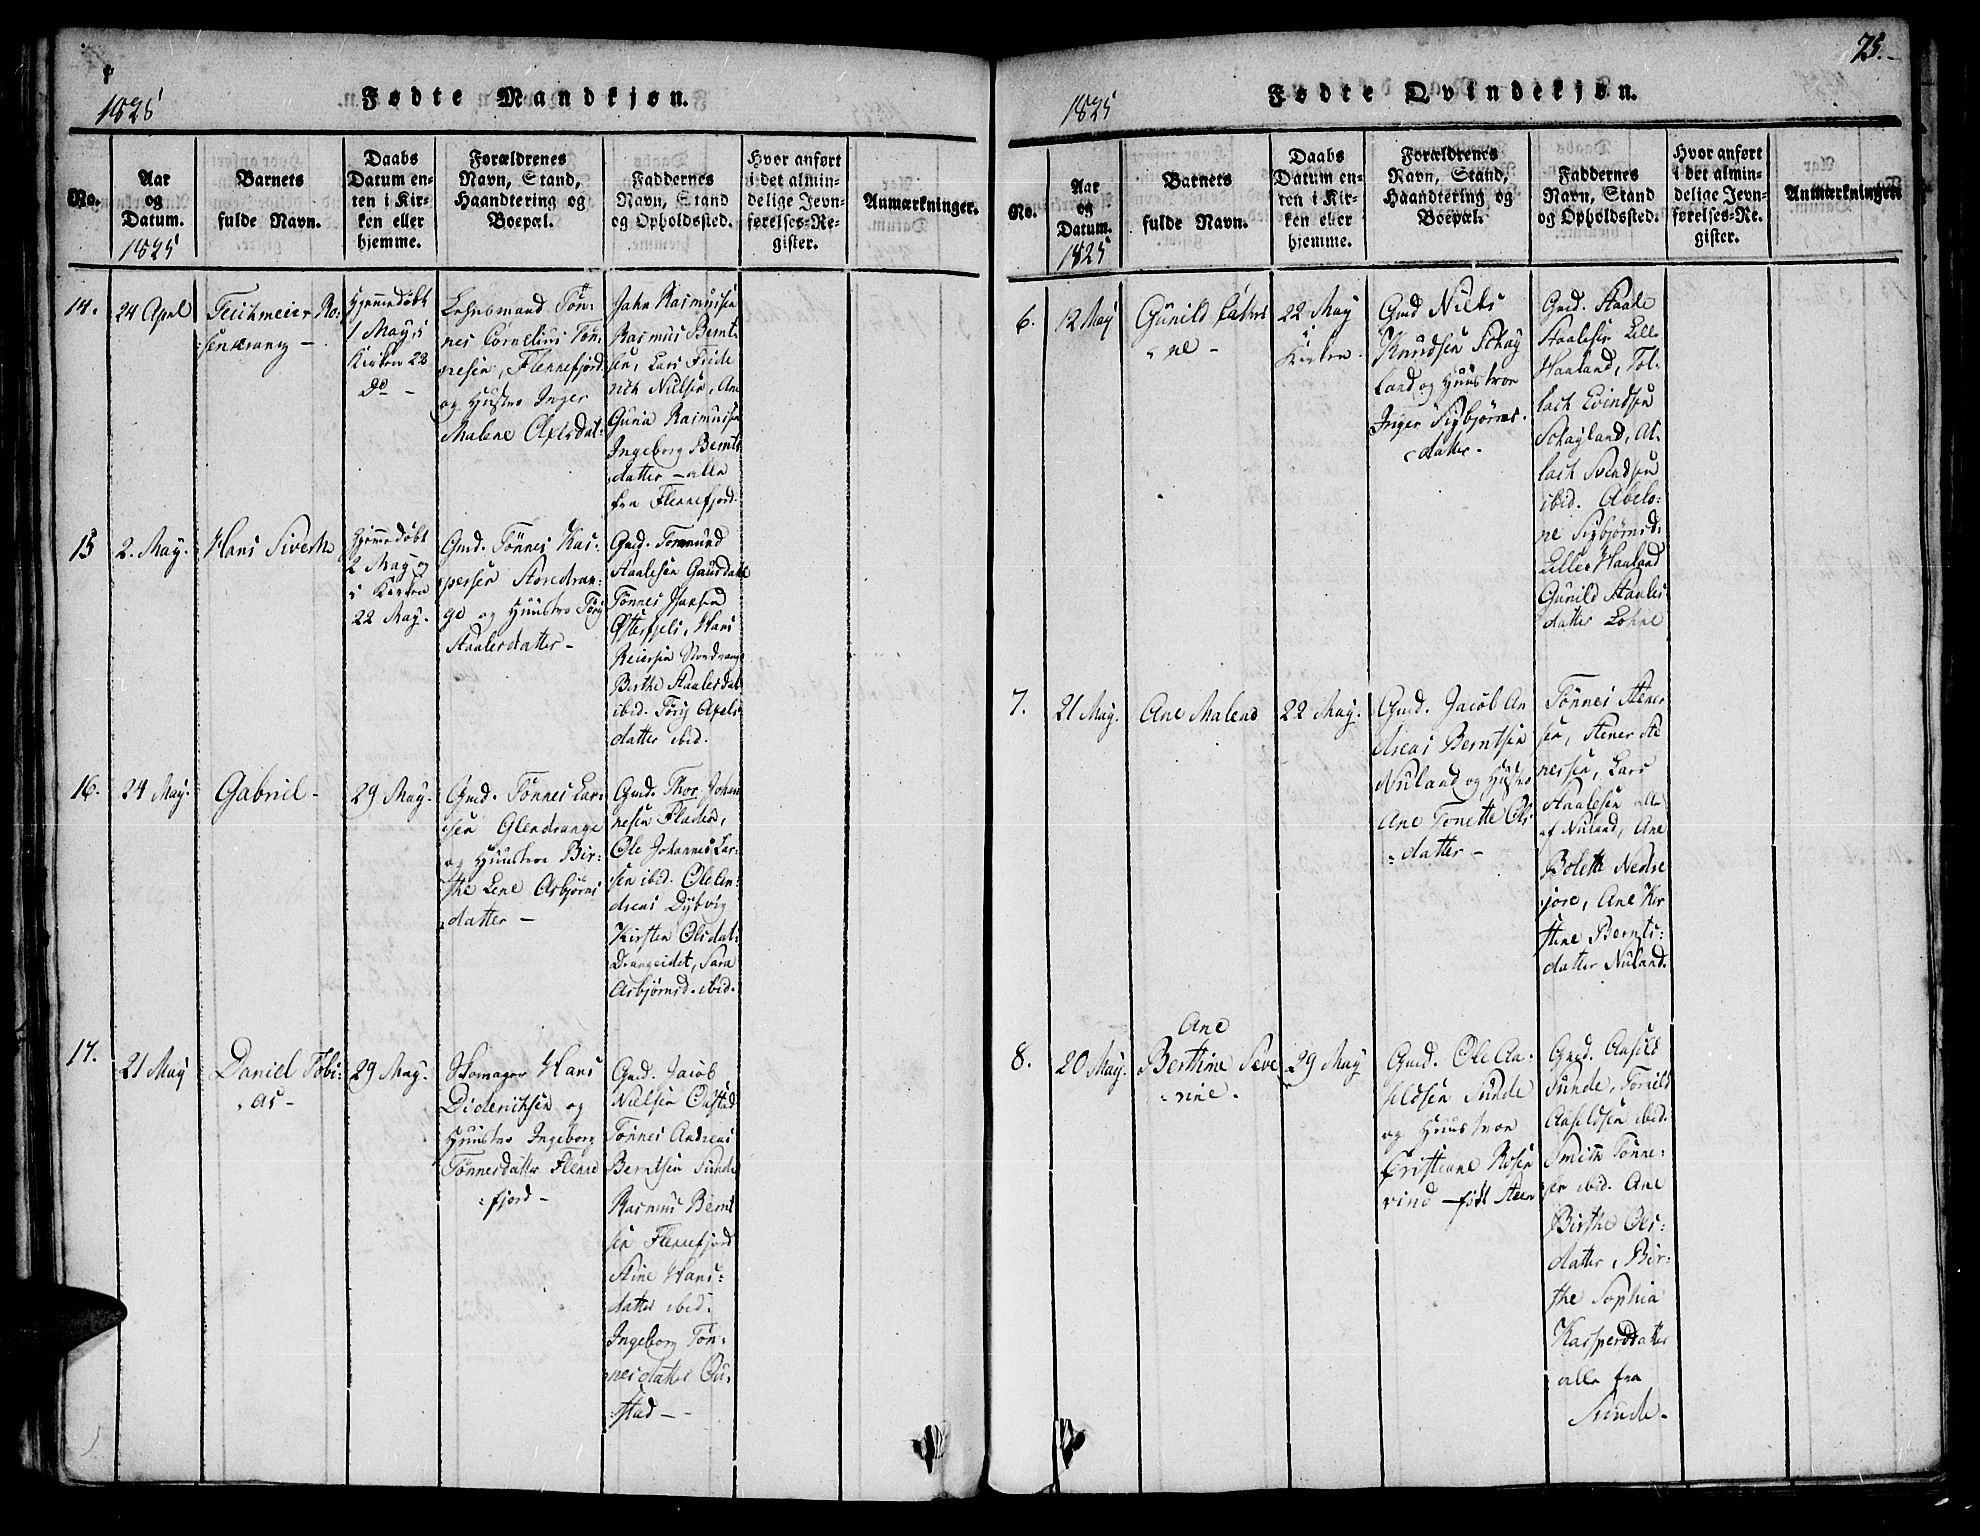 1825
Fødte Mandkjøn.
No.
Aar
og
Datum.
1825
Barnets
fulde Navn.
Daabs
Datum en-
ten i Kir-
ken eller
hjemme.
Forældrenes
Navn, Stand,
Haandtering og
Boepæl.
Faddernes
Navn, Stand
og Opholdssted.
Hvor anført
i det almin-
delige Jevn-
førelses-Re-
gister.
Anmærkninger.
14.
24 April
Teichmeier Ro-
senkrang -
Hjemmedøbt
1 May, i
Kirken 22
Do -
Lehnsmand Tøn-
nes Cornelius Tøn-
nesen, Flennefjord
og Hustro Inger
Malene Axelsdat-
Jahn Rasmussen
Rasmus Bernt-
sen, Lars Fride
rich Nielsen, Ane
Guria Rasmussen
Ingeborg Bernts
datter - alle
fra Flennefjord.
15
2. May.
Hans Siverth
Hjemmedøbt
2 May og
i Kirken
22 May.
Gmd. Tønnes Kas-
persen Storedran-
ge og Huustro Tørg
Staalesdatter -
Gmd. Tormund
Staalesen Gausdahl
Tønnes Jansen
Østefjeli, Hans
Reiersen Stordrange
Birthe Staalesdat
ibid. Tørg Axels
datter ibid.
16.
24 May.
Gabriel -
29 May.
Gmd. Tønnes Lar-
sen Glendrange
og Huustroe Bir-
the Lene Asbjørns
datter -
Gmd. Thor Johan
nesen Fladen,
Ole Johannes Lar-
sen ibid. Ole An-
dreas Dybvig
Kirsten Olsdat-
Drangeidet, Sara
Asbjørnsd. ibid.
17.
21 May
Daniel Tobi-
as -
29 May.
Skomager Hans
Dideriksen og
Huustro Ingeborg
Tønnesdatter Flenne
fjord -
Gmd. Jacob
Nielsen Oustad
Tønnes Andreas
Berntsen Sunde
Rasmus Bernt
sen Flennefjord
Stine Hans-
datter ibid.
Ingeborg Tøn-
nesdatter Ou-
stad - -
75.-
1825
Fødte Qvindekjøn.
No.
Aar
og
Datum.
1825
Barnets
fulde Navn.
Daabs
Datum en-
ten i Kir-
ken eller
hjemme.
Forældrenes
Navn, Stand,
Haandtering og
Boepæl.
Faddernes
Navn, Stand
og Opholdssted.
Hvor anført
i det almin-
delige Jevn-
førelses-Re-
gister.
Anmærkninger
6.
12 May
Gunild
ne -
22 May
i
Kirken.
Gmd Niels
Knudsen Schay
land og Huustroe
Inger Sigbjørns-
datter.
Gmd. Staale
Staalesen Lille
Haaland, Tol-
lach Evindsen
Schayland, At-
lach Svendsen
ibid. Abelo-
ne Sigbjørnsd.
Lille Haaland
Gunild Staales
datter Lohne
7.
21 May.
Ane Malene
22 May.
Gmd. Jacob An
dreas Berntsen
Nuland og Hustro
Ane Tonette Ols
datter -
Tønnes Stener
sen, Stener Tø
nessen, Lars
Staalesen alle
af Nuland, Ane
Bolette Nedre
jore, Ane Kir
stine Bernts-
datter Nuland.
8.
20 May.
Ane
Berthine Seve
rine.
29 May
Gmd. Ole Aa-
sildsen Sunde
og Huustroe
Cristiane Rosen
vind - født Steen
Gmd. Aasild
Sunde, Torild
Aasildsen ibid.
Smith Tønne-
sen ibid. Ane
Birthe Ols-
datter, Bir-
the Sophia
Kaspersdatter
alle fra
Sunde.